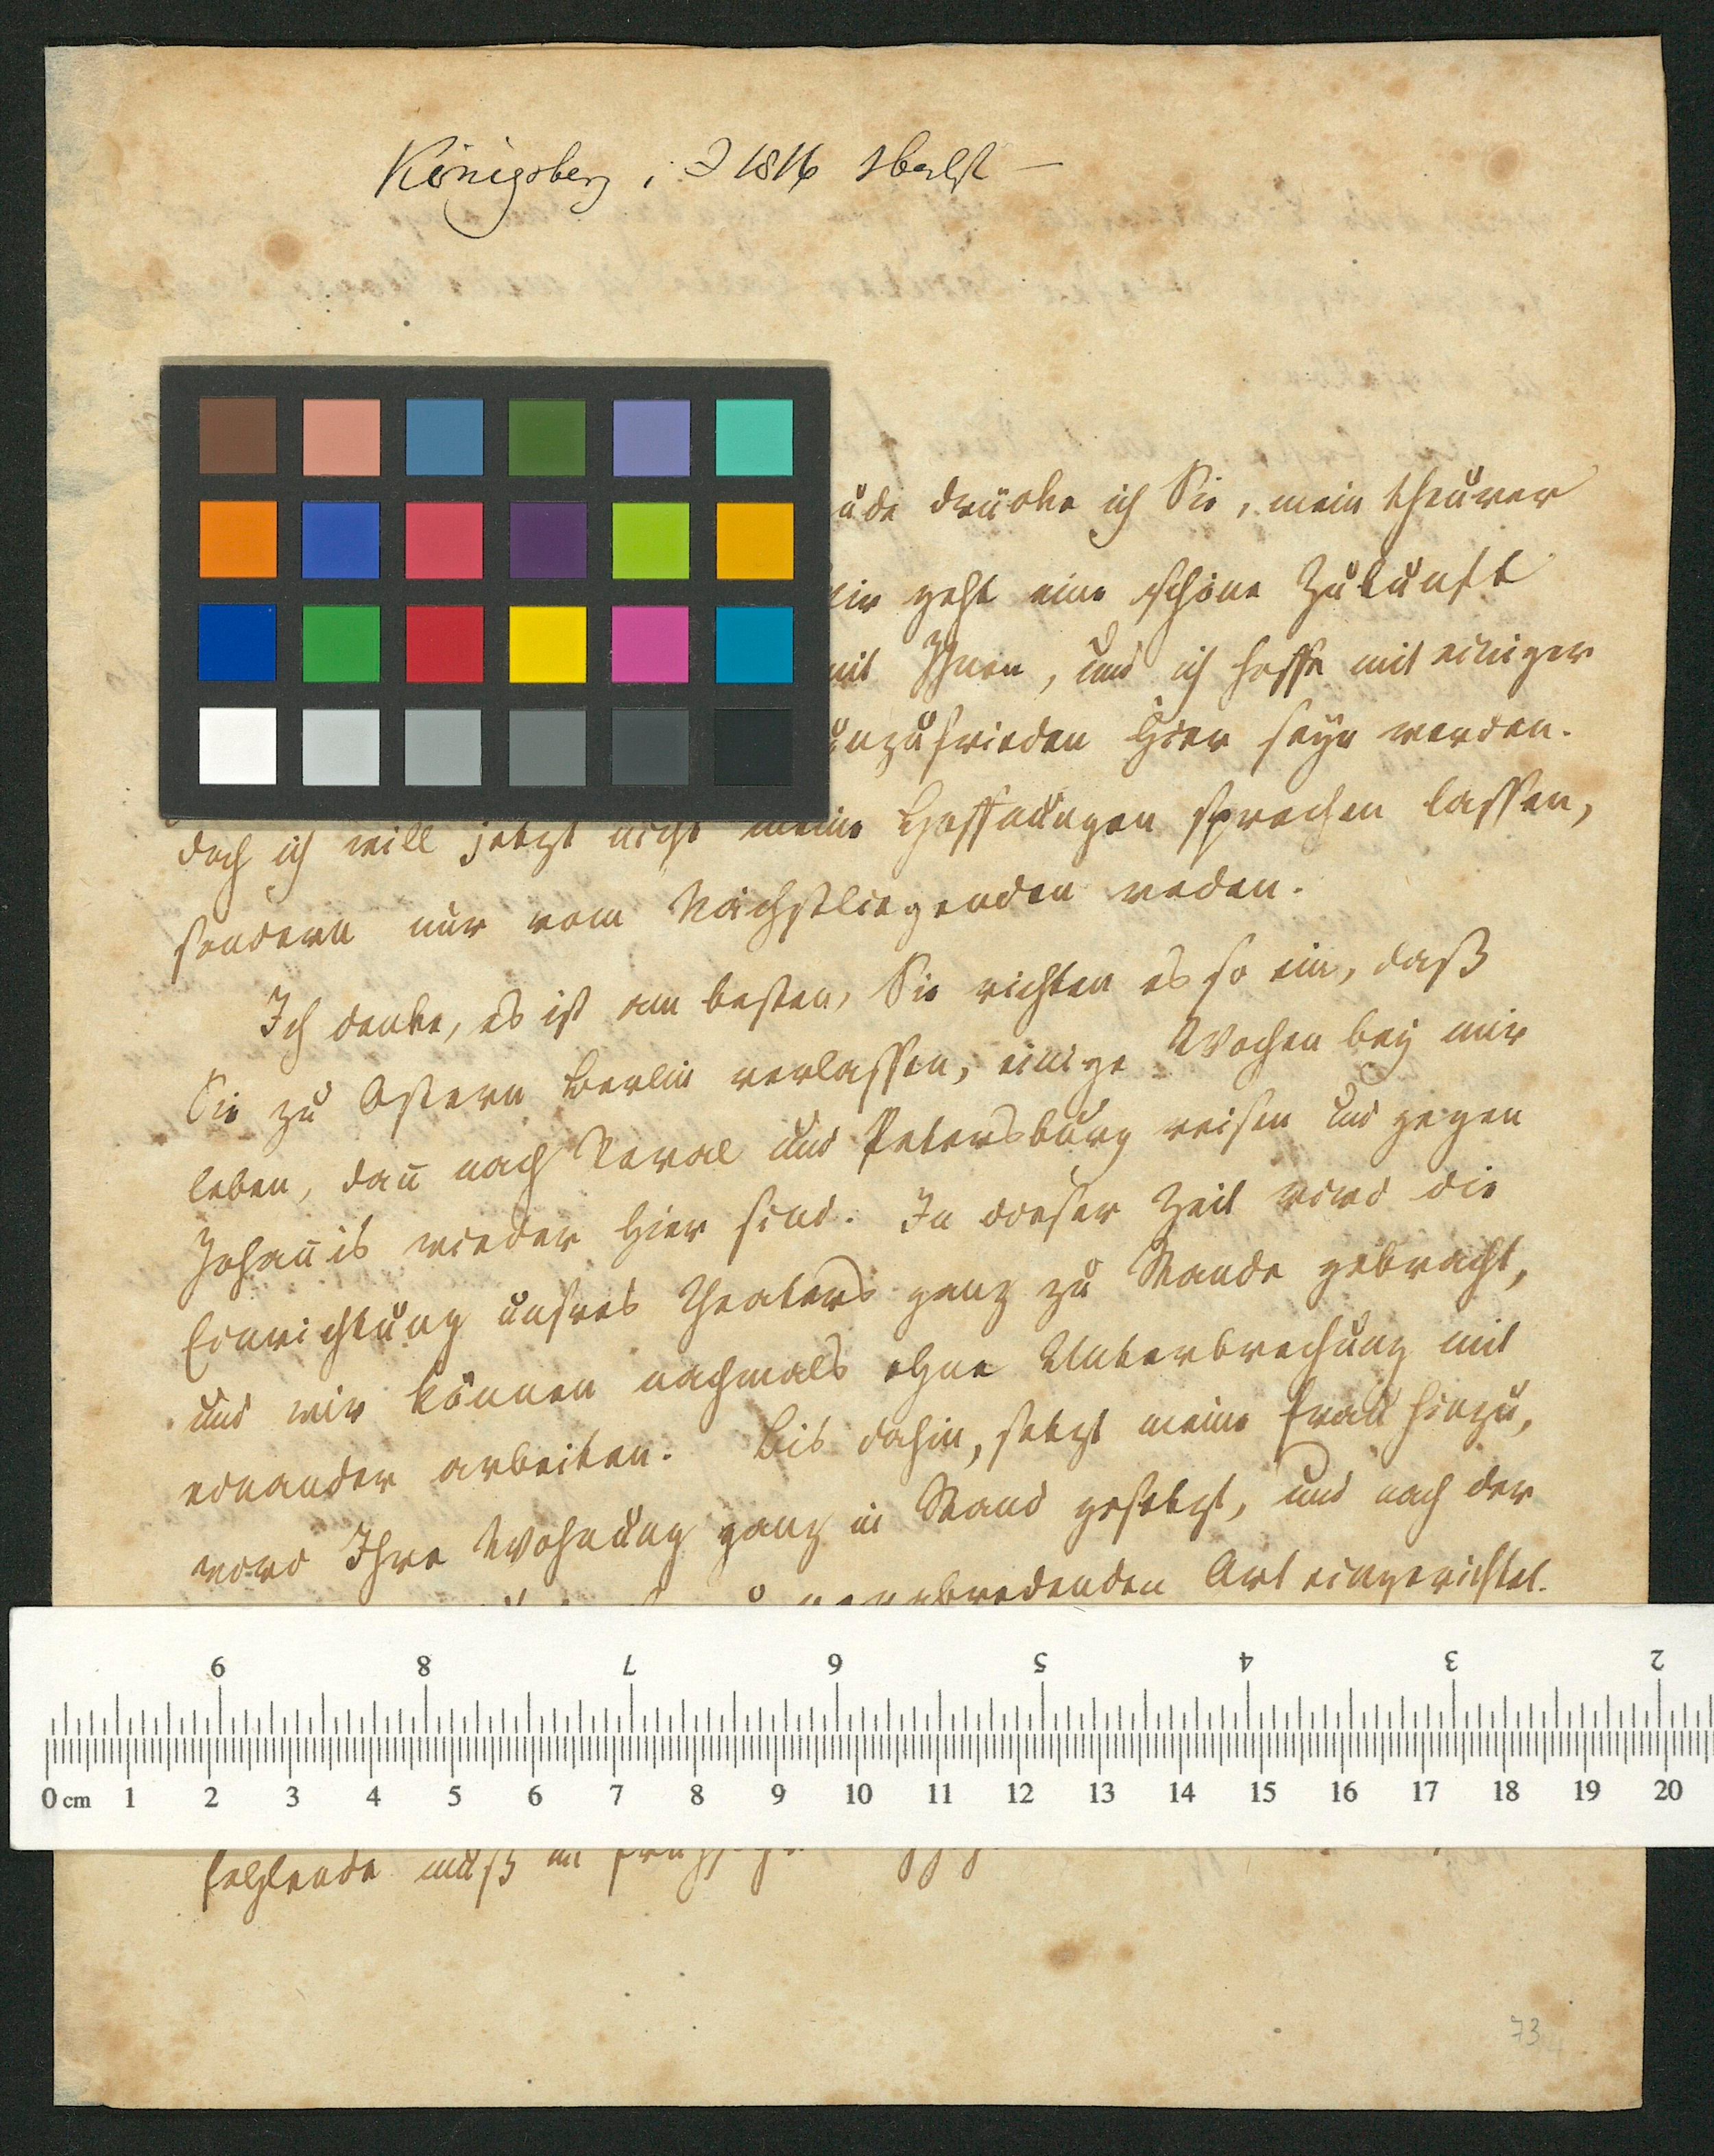 Königsberg, i. J 1816 Herbst —
ude drücke ich Sie, mein theurer
mir geht eine schöne Zukunft
mit Ihnen, und ich hoffe mit einiger
unzufrieden hier seyn werden.
doch ich will jetzt nicht meine Hoffnungen sprechen lassen,
sondern nur vom Nächstliegenden reden.
Ich denke, es ist am besten, Sie richten es so ein, daß
Sie zu Ostern Berlin verlassen, einige Wochen bey mir
leben, dañ nach Reval und Petersburg reisen und gegen
Johañis wieder hier sind. In dieser Zeit wird die
Einrichtung unsres Theaters ganz zu Stande gebracht,
und wir können nachmals ohne Unterbrechung mit
einander arbeiten. Bis dahin, setzt meine Frau hinzu,
wird Ihre Wohnung ganz in Stand gesetzt, und nach der
verabredenden Art eingerichtet.
9 8 7 6 5 4 3 2
0 cm 1 2 3 4 5 6 7 8 9 10 11 12 13 14 15 16 17 18 19 20
fehlende muß im
73